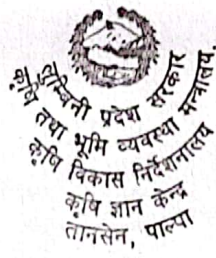 लुम्बिनी प्रदेश सरकार
कृषि तथा भूमि व्यवस्था मन्त्रालय,
कृषि विकास निर्देशनालय
कृषि ज्ञान केन्द्र
तानसेन, पाल्पा